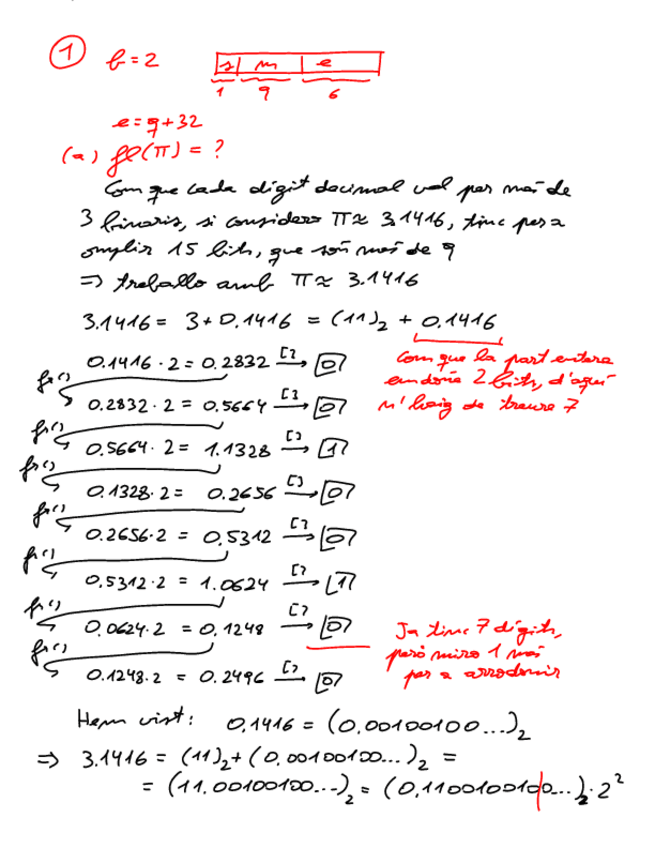 1 b=2 s m e
1 9 6
e=q+32
(a) fl(π) = ?
Com que cada dígit decimal val per més de
3 binaris, si considero π≈ 3.1416, tinc per a
omplir 15 bits, que són més de 9
⇒ treballo amb π≈ 3.1416
3.1416 = 3+0.1416 = (11)₂ + 0.1416
0.1416 · 2 = 0.2832 [ ]→ 0
Com que la part entera
em dóna 2 bits, d'aquí
n'haig de treure 7
fr()
0.2832 · 2 = 0.5664 [ ]→ 0
fr()
0.5664 · 2 = 1.1328 [ ]→ 1
fr()
0.1328 · 2 = 0.2656 [ ]→ 0
fr()
0.2656 · 2 = 0.5312 [ ]→ 0
fr()
0.5312 · 2 = 1.0624 [ ]→ 1
fr()
0.0624 · 2 = 0.1248 [ ]→ 0
fr()
0.1248 · 2 = 0.2496 [ ]→ 0
Ja tinc 7 dígits,
però miro 1 més
per a arrodonir
Hem vist: 0.1416 = (0.00100100...)₂
⇒ 3.1416 = (11)₂+(0.00100100...)₂ =
= (11.00100100...)₂ = (0.110010010|0...)₂·2²